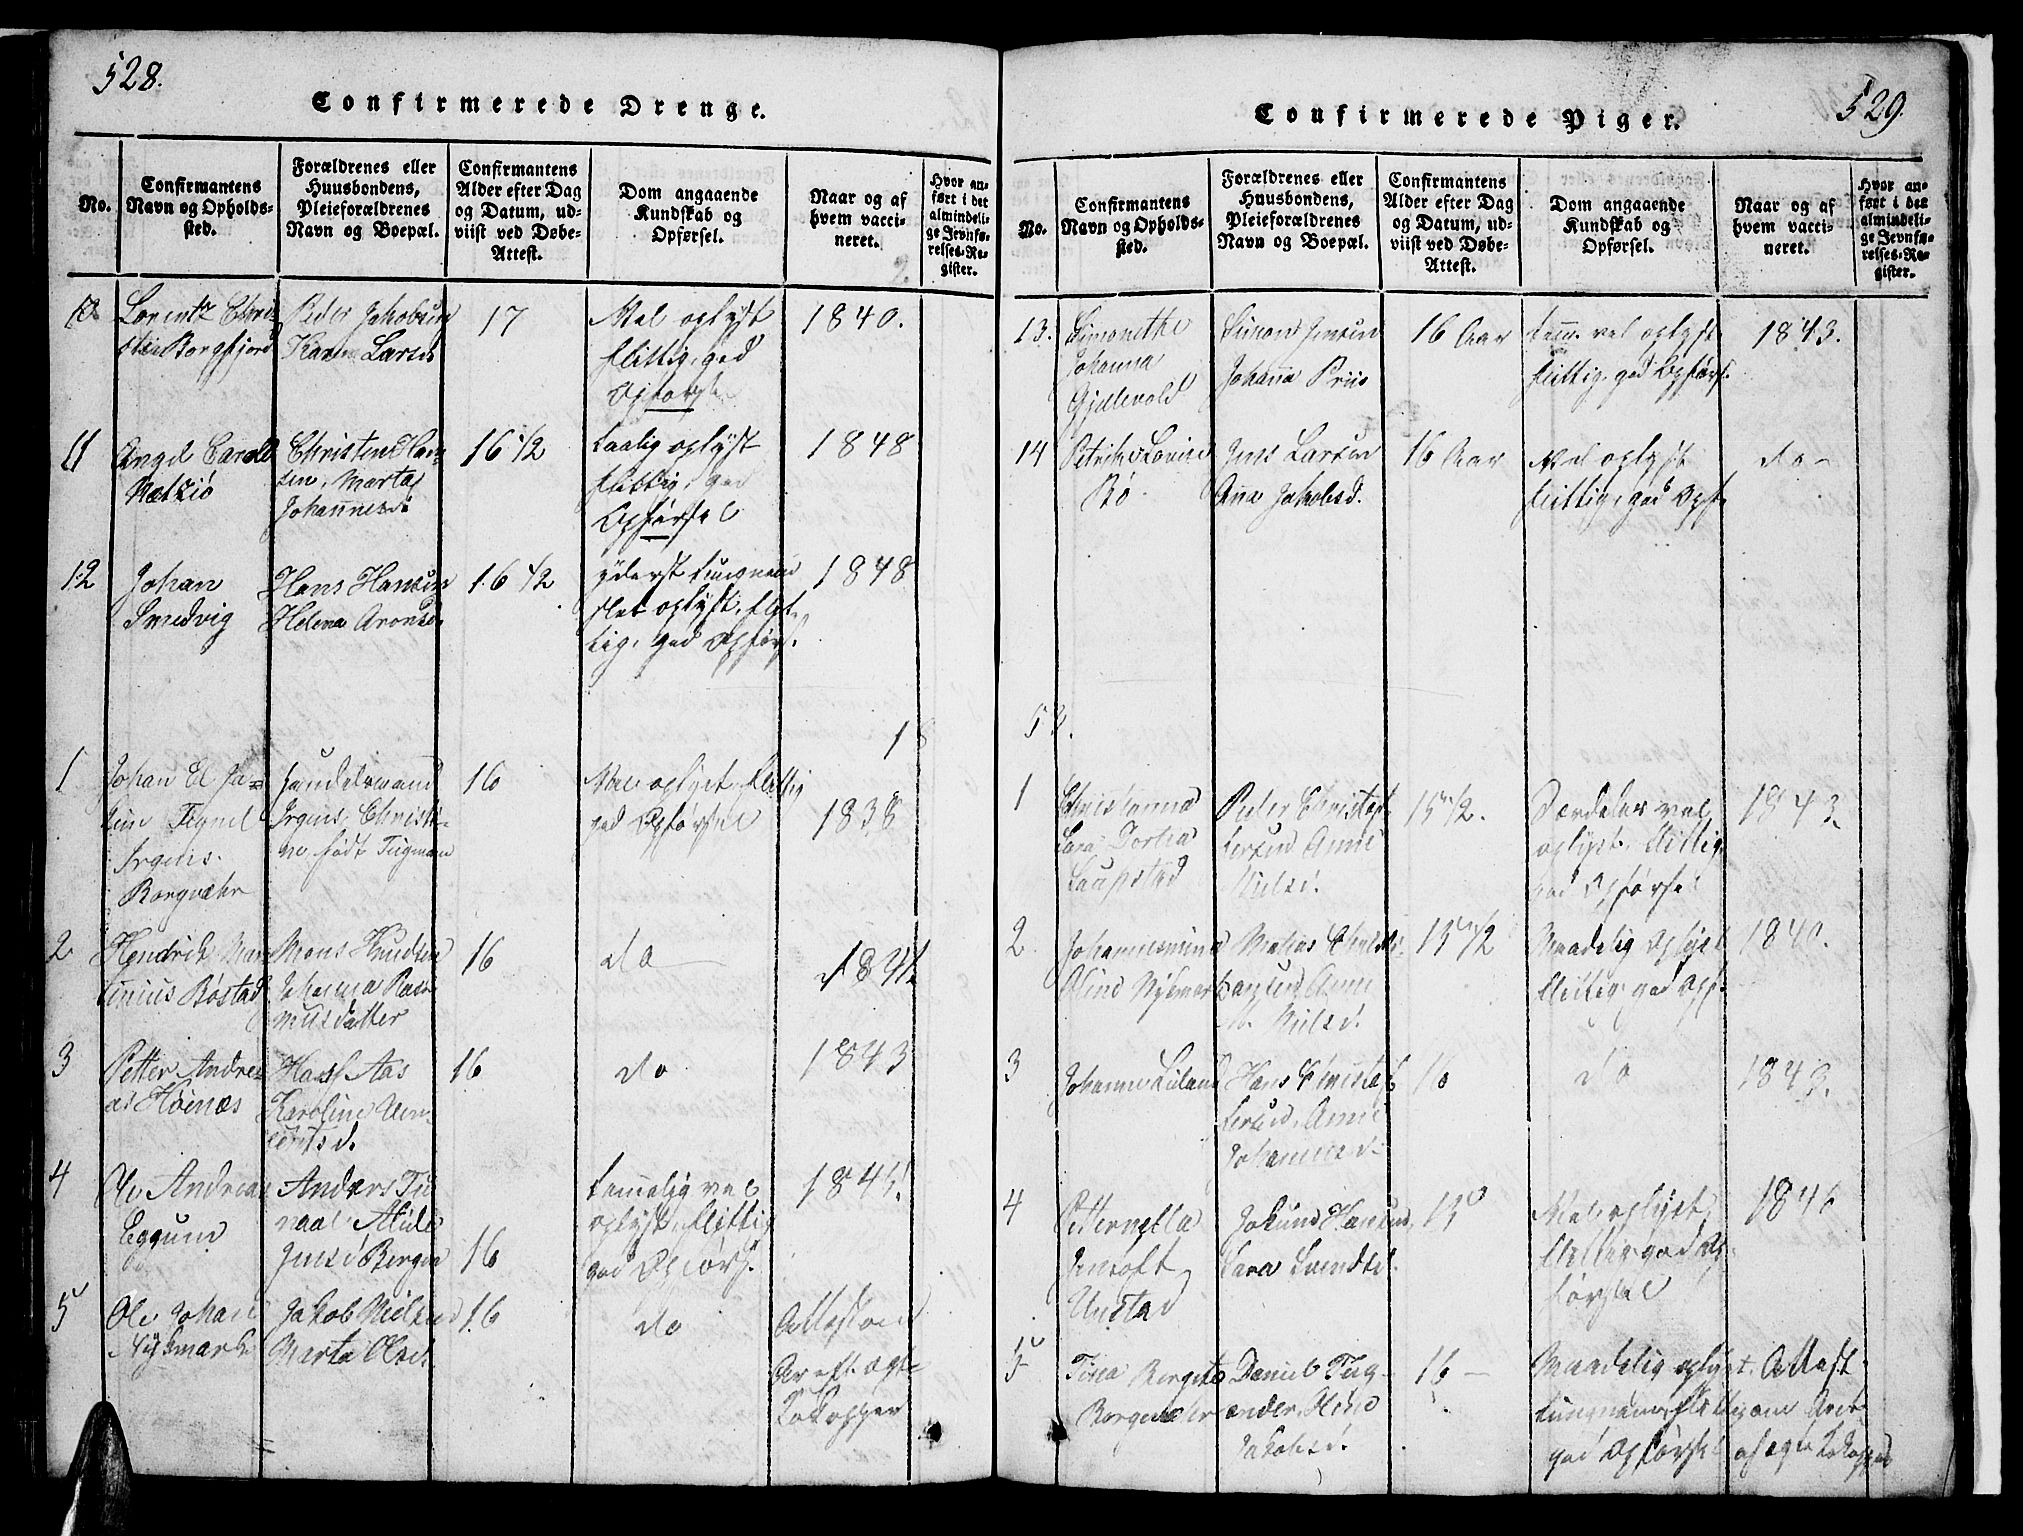 528.
Confirmerede Drenge.
No.
Confirmantens
Navn og Opholds-
sted.
Forældrenes eller
Huusbondens,
Pleieforældrenes
Navn og Boepæl.
Confirmantens
Alder efter Dag
og Datum, ud-
viist ved Døbe-
Attest.
Dom angaaende
Kundskab og
Opførsel.
Naar og af
hvem vacci-
neret.
Hvor an-
ført i det
almindeli-
ge Jevnfø-
relses-Re-
gister.
10
Lorentz Chri-
Borgfjord
Peder Jakobsen
Karen Larsd
17
Vel oplyst
flittig, god
Opførsel
1840.
11
Angel Carol
Christen Han-
sen, Marta
Johannesd:
16 1/2
taalig oplyst
flittig, god
Opførsel
1848
12
Johan
Smedvig
Hans Hansen
Helena Aronsd
16 1/2
yderst tungnem
slet oplyst, flit-
tig, god Opførs.
1848
18
1
Johan
Irgens.
Borgvæhr
Handelsmand
Irgens, Christi-
ne født Tugman
16
Vel oplyst, flittig
god Opførsel
1838
2
Hendrik Mar-
Bøstad
Mons Knudsen
Johanna Ras-
musdatter
16
do
184
3
Petter Andre-
as Høinæs
Aas
Karoline
16
do
1843
4
Ole Andreas
Eggum
Anders
Jensd Bergen
16
temmelig vel
oplyst, flittig
god Opførs.
1845
5
Ole Johan
Nykmark
Jakob Nielsen
Marta Olsd.
16
do
Attest om
Ar eft. ægte
Kokopper
529.
Confirmerede Piger.
No.
Confirmantens
Navn og Opholds-
sted.
Forældrenes eller
Huusbondens,
Pleieforældrenes
Navn og Boepæl.
Confirmantens
Alder efter Dag
og Datum, ud-
viist ved Døbe-
Attest.
Dom angaaende
Kundskab og
Opførsel.
Naar og af
hvem vacci-
neret.
Hvor an-
ført i det
almindeli-
ge Jevnfø-
relses-Re-
gister.
13.
Simonethe
Johanna
Gjellevold
Simon Jensen
Johanna Priis
16 Aar
temm. vel oplyst
flittig, god Opførs.
1843.
14
Petrikke Lovise
Bø
Jens Larsen
Anna Jakobsd.
16 Aar
Vel oplyst
flittig, god Opf.
do-
53.
1
Christianna
Sara Dortea
Laupstad
Peder Christof-
fersen Anne
Nielsd.
15 1/2.
Særdeles vel
oplyst, flittig
god Opførsel
1843
2
Nykmark
Matias
Anne
M. Nielsd.
15 1/2
Maadelig Oplyst
flittig, god Opf.
1840.
3
Johanne
Hans Christof-
fersen, Anne
Johannesd:
16
do
1843.
4
Petternella
Jensoft
Unstad
Jokum Hansen,
Sara Svendsd.
15
Vel oplyst,
flittig god Op-
førsel
184
5
Tina Bergite
Borgevær
Daniel Tug-
ander,
Jakobsd.
16 -
Maadelig oplyst,
tungnem, flittig
god Opførsel
Attest
om Aret
af ægte Kokopper